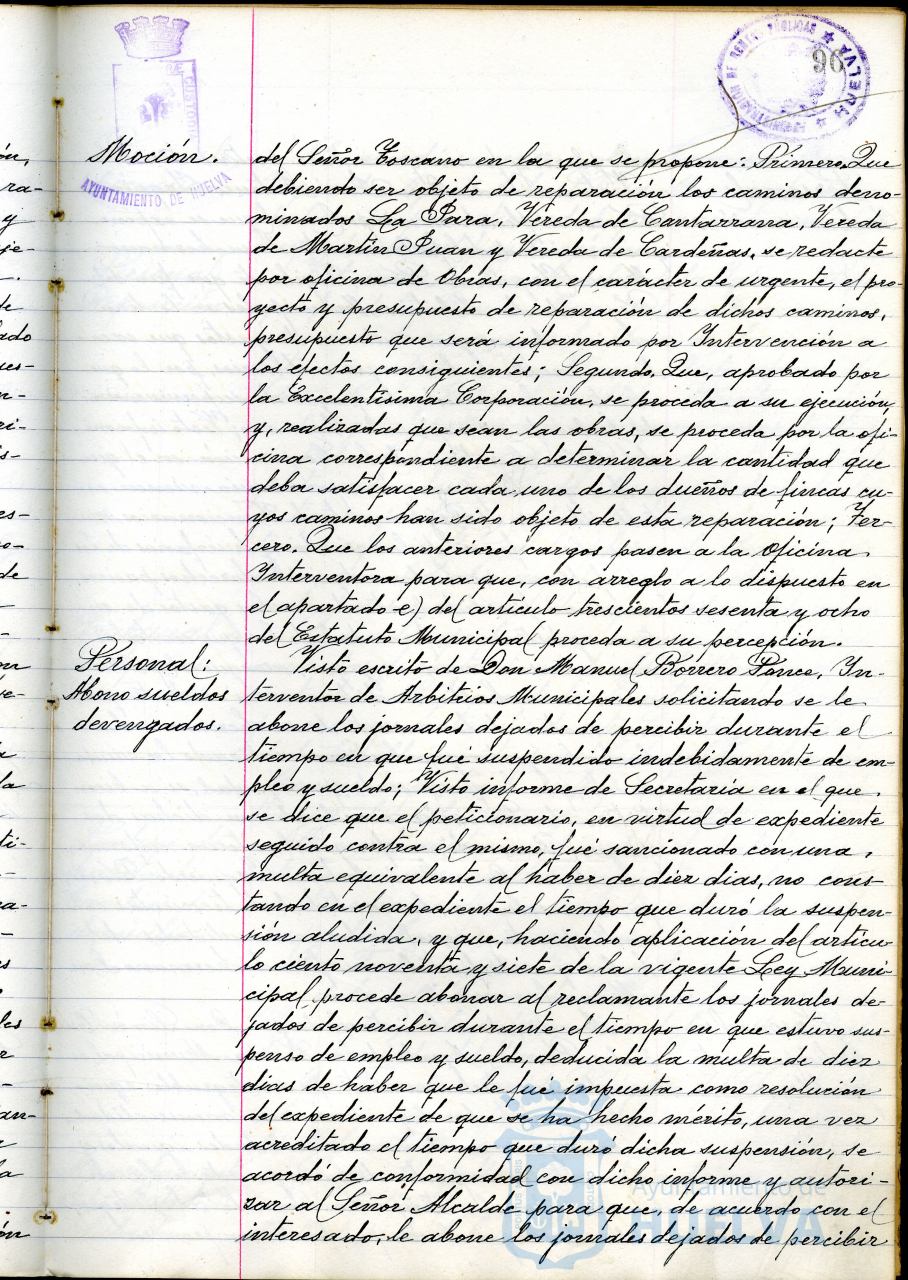 96
ADMINISTRACION DE RENTAS PUBLICAS
HUELVA
CUSTODIA
AYUNTAMIENTO DE HUELVA
Moción.
del Señor Toscano en la que se propone: Primero. Que
debiendo ser objeto de reparación los caminos deno-
minados La Para, Vereda de Cantarrana, Vereda
de Martín Juan y Vereda de Cardeñas, se redacte
por oficina de Obras, con el carácter de urgente, el pro-
yecto y presupuesto de reparación de dichos caminos,
presupuesto que será informado por Intervención a
los efectos consiguientes; Segundo. Que, aprobado por
la Excelentísima Corporación, se proceda a su ejecución,
y, realizadas que sean las obras, se proceda por la ofi-
cina correspondiente a determinar la cantidad que
deba satisfacer cada uno de los dueños de fincas cu-
yos caminos han sido objeto de esta reparación; Ter-
cero. Que los anteriores cargos pasen a la Oficina
Interventora para que, con arreglo a lo dispuesto en
el apartado e) del artículo trescientos sesenta y ocho
del Estatuto Municipal proceda a su percepción.
Personal:
Abono sueldos
devengados.
Visto escrito de Don Manuel Borrero Ponce, In-
terventor de Arbitrios Municipales solicitando se le
abone los jornales dejados de percibir durante el
tiempo en que fué suspendido indebidamente de em-
pleo y sueldo; Visto informe de Secretaría en el que
se dice que el peticionario, en virtud de expediente
seguido contra el mismo, fué sancionado con una
multa equivalente al haber de diez dias, no cons-
tando en el expediente el tiempo que duró la suspen-
sión aludida, y que, haciendo aplicación del artícu-
lo ciento noventa y siete de la vigente Ley Muni-
cipal procede abonar al reclamante los jornales de-
jados de percibir durante el tiempo en que estuvo sus-
penso de empleo y sueldo, deducida la multa de diez
dias de haber que le fué impuesta como resolución
del expediente de que se ha hecho mérito, una vez
acreditado el tiempo que duró dicha suspensión, se
acordó de conformidad con dicho informe y autori-
zar al Señor Alcalde para que, de acuerdo con el
interesado, le abone los jornales dejados de percibir
Ayuntamiento de
HUELVA